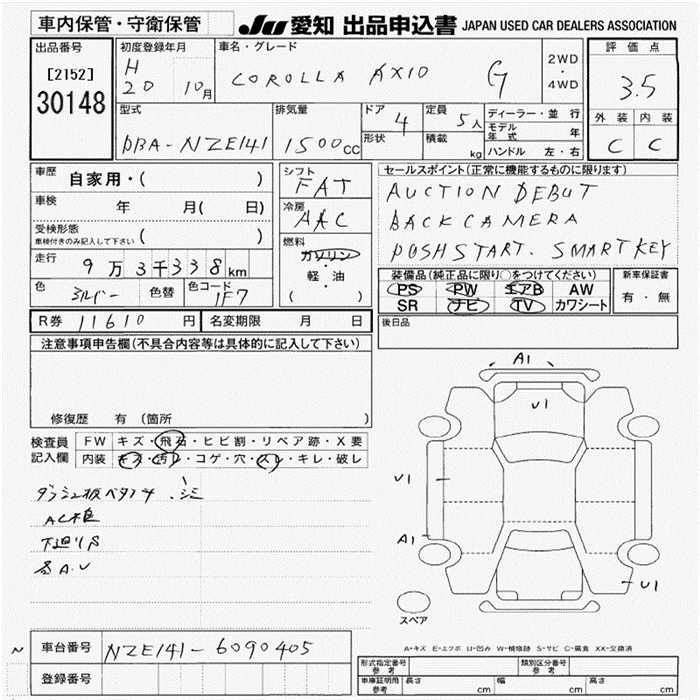 車内保管・守衛保管
JU 愛知 出品申込書 JAPAN USED CAR DEALERS ASSOCIATION
出品番号
[2152]
30148
初度登録年月
H
20 10月
車名・グレード
COROLLA AXIO G
2WD
・
4WD
評価点
3.5
外装 内装
C C
型式
DBA-NZE141
排気量
1500cc
ドア
4
形状
定員
5人
積載
kg
ディーラー・並行
モデル
年式 年
ハンドル 左・右
車歴 自家用・( )
車検 年 月( 日)
受検形態
車検付きのみ記入して下さい ( )
走行 9万3千338km
色 シルバー 色替 色コード 1F7
シフト
FAT
冷房
AAC
燃料
ガソリン
・
軽・油
( )
セールスポイント(正常に機能するものに限ります)
AUCTION DEBUT
BACK CAMERA
PUSH START. SMART KEY
装備品(純正品に限り○をつけてください)
PS PW エアB AW
SR ナビ TV カワシート
新車保証書
有・無
R券 11610円 名変期限 月 日
後日品
注意事項申告欄(不具合内容等は具体的に記入して下さい)
修復歴 有 (箇所 )
検査員
記入欄
FW キズ・飛石・ヒビ割・リペア跡・X要
内装 キズ・汚レ・コゲ・穴・スレ・キレ・破レ
ダッシュ板ベタツキ .シミ
下廻りS
A1
U1
U1
A1
U1
スペア
A-キズ E-エクボ U-凹み W-補修跡 S-サビ C-腐食 XX-交換済
N
車台番号 NZE141-6090405
登録番号
形式指定番号
参考
類別区分番号
参考
車庫証明用
参考
長さ cm 幅 cm 高さ cm